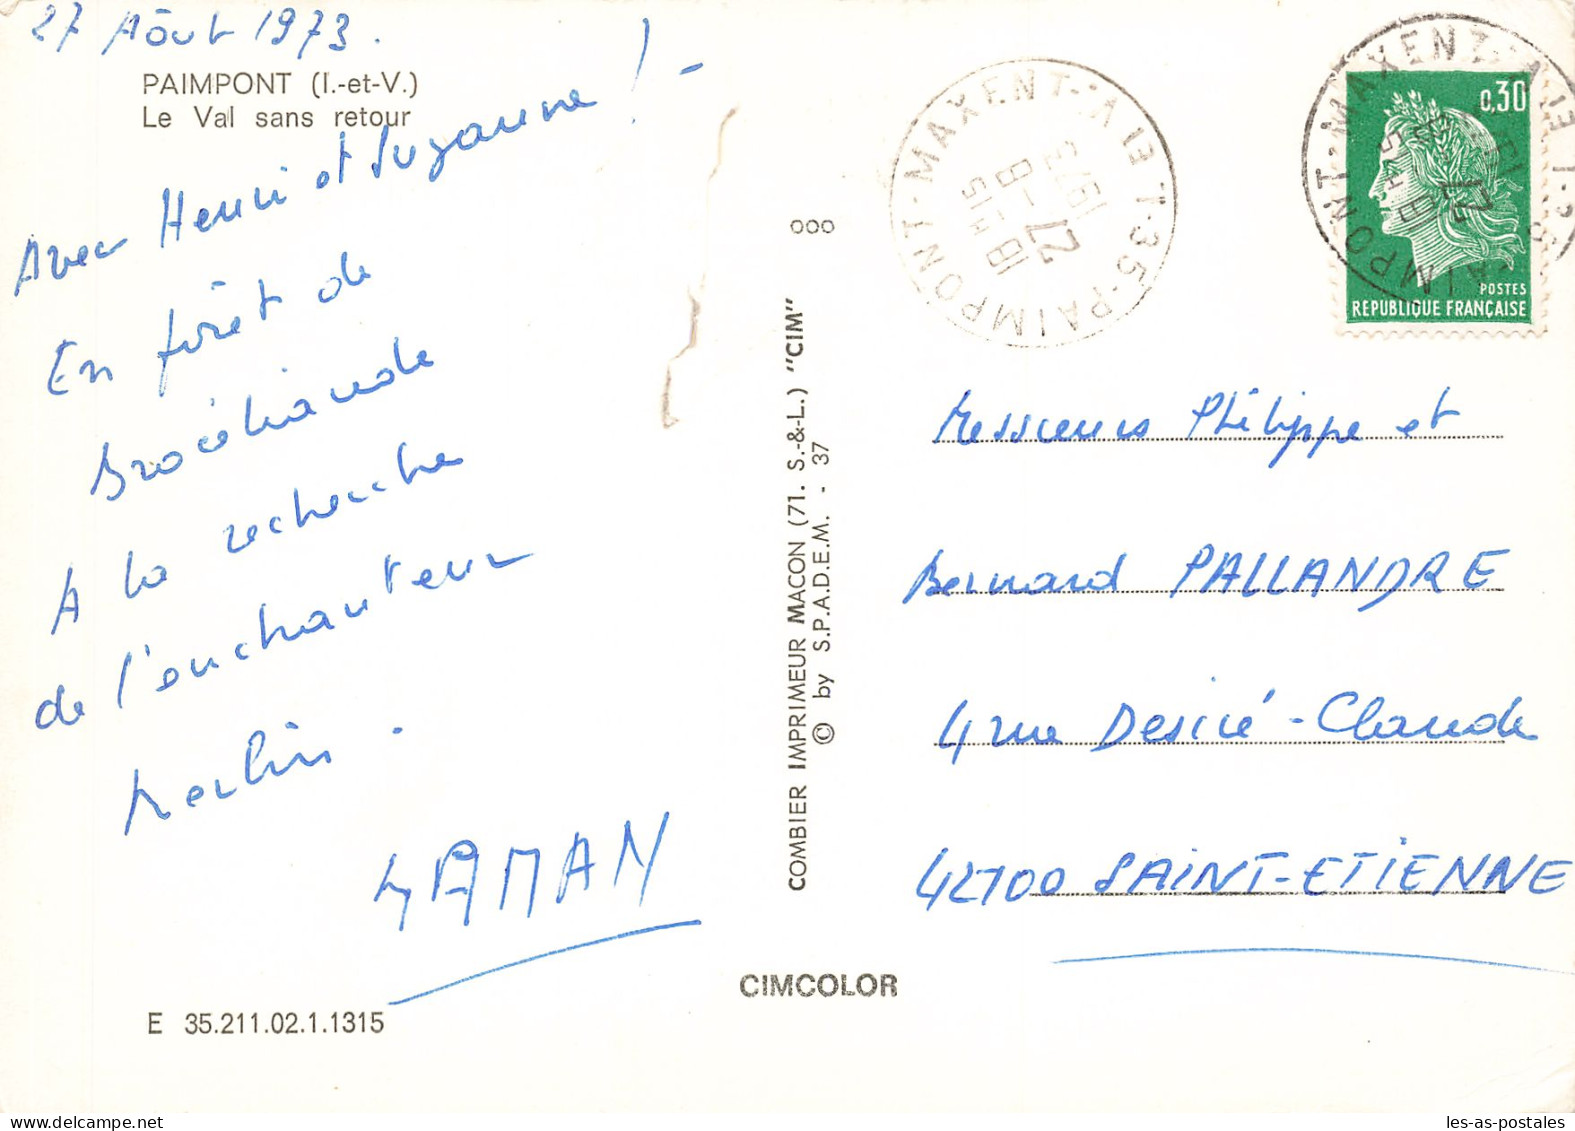 27 Août 1973.
PAIMPONT (I.-et-V.)
Le Val sans retour
Avec Henri et Suzanne ! -
En forêt de
Brocéliande
A la recherche
de l'enchanteur
Merlin.
MAMAN
E 35.211.02.1.1315
COMBIER IMPRIMEUR MACON (71. S.-&-L.) "CIM"
© by S.P.A.D.E.M. - 37
CIMCOLOR
MAXENT-"A 13 T.35-PAIMPONT
18 H 15
27 - 8
1973
0,30
POSTES
REPUBLIQUE FRANÇAISE
Messieurs Philippe et
Bernard PALLANDRE
4 rue Desiré-Claude
42100 SAINT-ETIENNE
les-as-postales